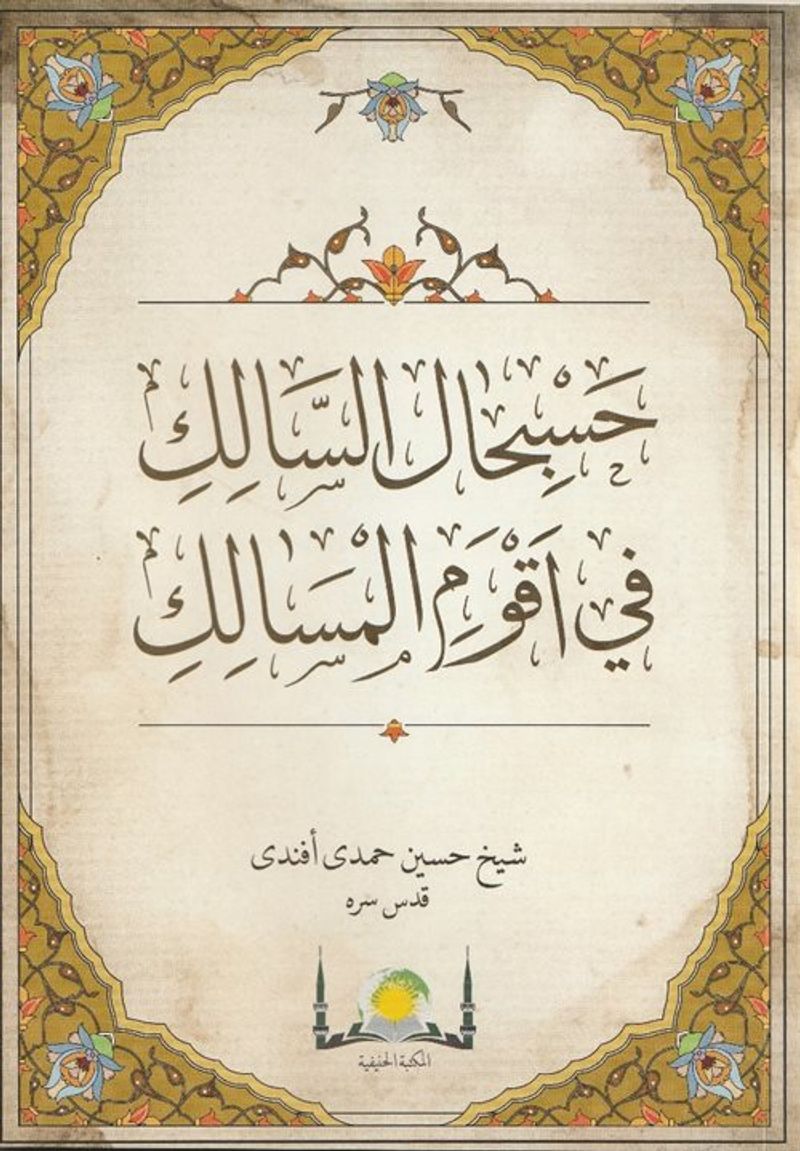 حَسْبِحَال السَّالِكِ
في اَقْوَمِ الْمَسَالِكِ
شيخ حسين حمدى أفندى
قدس سره
المكتبة الحنيفية